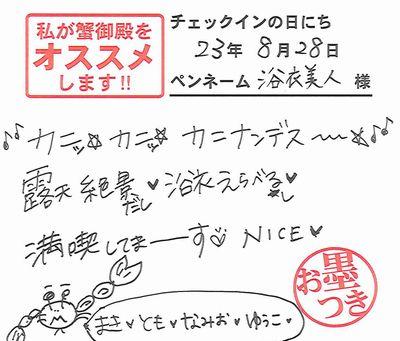 私が蟹御殿を
オススメ
します!!
チェックインの日にち
23年 8月28日
ペンネーム 浴衣美人 様
♪♪カニッ☆カニッ☆ カニナンデス〜〜☆♪♪
露天絶景だし♥浴衣えらべるし♥
満喫してまーーす♡ NICE♥
お墨つき
まき・とも・なみお・ゆうこ・